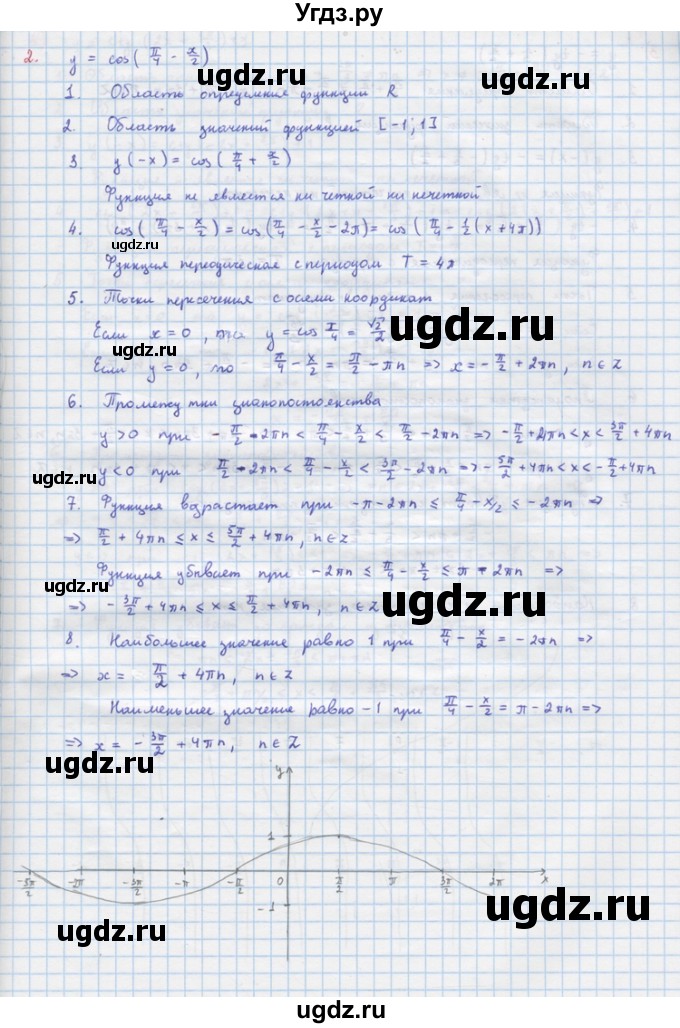 Угдз.ру
2. y = cos(π/4 - x/2)
1. Область определения функции R
2. Область значений функцией [-1; 1]
3 y(-x) = cos(π/4 + x/2)
Функция не является ни четной ни нечетной
4. cos(π/4 - x/2) = cos(π/4 - x/2 - 2π) = cos(π/4 - 1/2(x + 4π))
Функция периодическая с периодом T = 4π
5. Точки пересечения с осями координат
Если x = 0, то y = cos π/4 = √2/2
Если y = 0, то π/4 - x/2 = π/2 - πn => x = -π/2 + 2πn, n ∈ Z
6. Промежутки знакопостоянства
y > 0 при -π/2 - 2πn < π/4 - x/2 < π/2 - 2πn => -π/2 + 4πn < x < 3π/2 + 4πn
y < 0 при π/2 - 2πn < π/4 - x/2 < 3π/2 - 2πn => -5π/2 + 4πn < x < -π/2 + 4πn
7. Функция возрастает при -π - 2πn ≤ π/4 - x/2 ≤ -2πn =>
=> π/2 + 4πn ≤ x ≤ 5π/2 + 4πn, n ∈ Z
Функция убывает при -2πn ≤ π/4 - x/2 ≤ π - 2πn =>
=> -3π/2 + 4πn ≤ x ≤ π/2 + 4πn, n ∈ Z
8. Наибольшее значение равно 1 при π/4 - x/2 = -2πn =>
=> x = π/2 + 4πn, n ∈ Z
Наименьшее значение равно -1 при π/4 - x/2 = π - 2πn =>
=> x = -3π/2 + 4πn, n ∈ Z
y
1
-5π/2 -2π -3π/2 -π -π/2 0 π/2 π 3π/2 2π x
-1
ugdz.ru
ugdz.ru
ugdz.ru
ugdz.ru
ugdz.ru
ugdz.ru
ugdz.ru
ugdz.ru
ugdz.ru
ugdz.ru
ugdz.ru
ugdz.ru
ugdz.ru
ugdz.ru